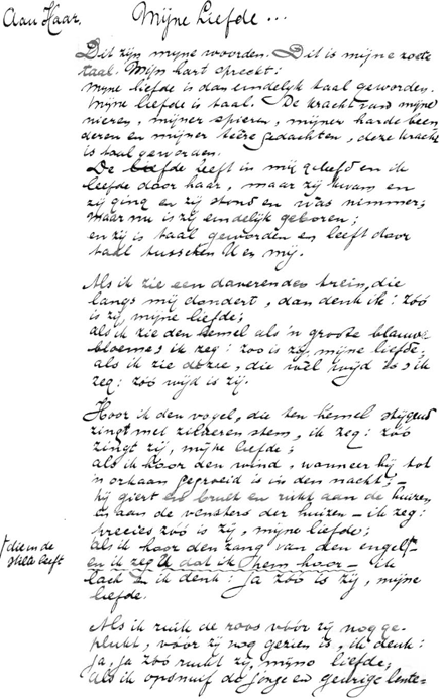 Aan Haar.
Mijne Liefde...
Dit zijn mijne woorden. Dit is mijne zoete
taal. Mijn hart spreekt:
mijne liefde is dan eindelijk taal geworden.
Mijne liefde is taal. De kracht van mijne
nieren, mijner spieren, mijner harde been
deren en mijner teere gedachten, deze kracht
is taal geworden.
De liefde heeft in mij geleefd en ik
leefde door haar, maar zij kwam en
zij ging en zij stond en was nimmer;
maar nu is zij eindelijk geboren;
en zij is taal geworden en leeft door
taal tusschen U en mij.
Als ik zie een daverenden trein, die
langs mij dondert, dan denk ik: zóó
is zij, mijne liefde;
als ik zie den hemel als 'n groote blauwe
bloeme, ik zeg: zoo is zij, mijne liefde;
als ik zie de zee, die wél wijd is, ik
zeg: zóó wijd is zij.
Hoor ik den vogel, die ten hemel stijgend
zingt met zilveren stem, ik zeg: zóó
zingt zij, mijne liefde;
als ik hoor den wind, wanneer hij tot
'n orkaan gegroeid is in den nacht; –
hij giert en brult en rukt aan de huizen
en aan de vensters der huizen – ik zeg:
precies zóó is zij, mijne liefde;
als ik hoor den zang van den engel
† die in de
stilte leeft
en ik zeg U dat ik Hem hoor – ik
lach & ik denk: ja zóó is zij, mijne
liefde.
Als ik ruik de roos vóór zij nog ge-
plukt, vóór zij nog gezien is, ik denk:
ja, ja zóó ruikt zij, mijne liefde;
als ik opsnuif de jonge en geurige lente-